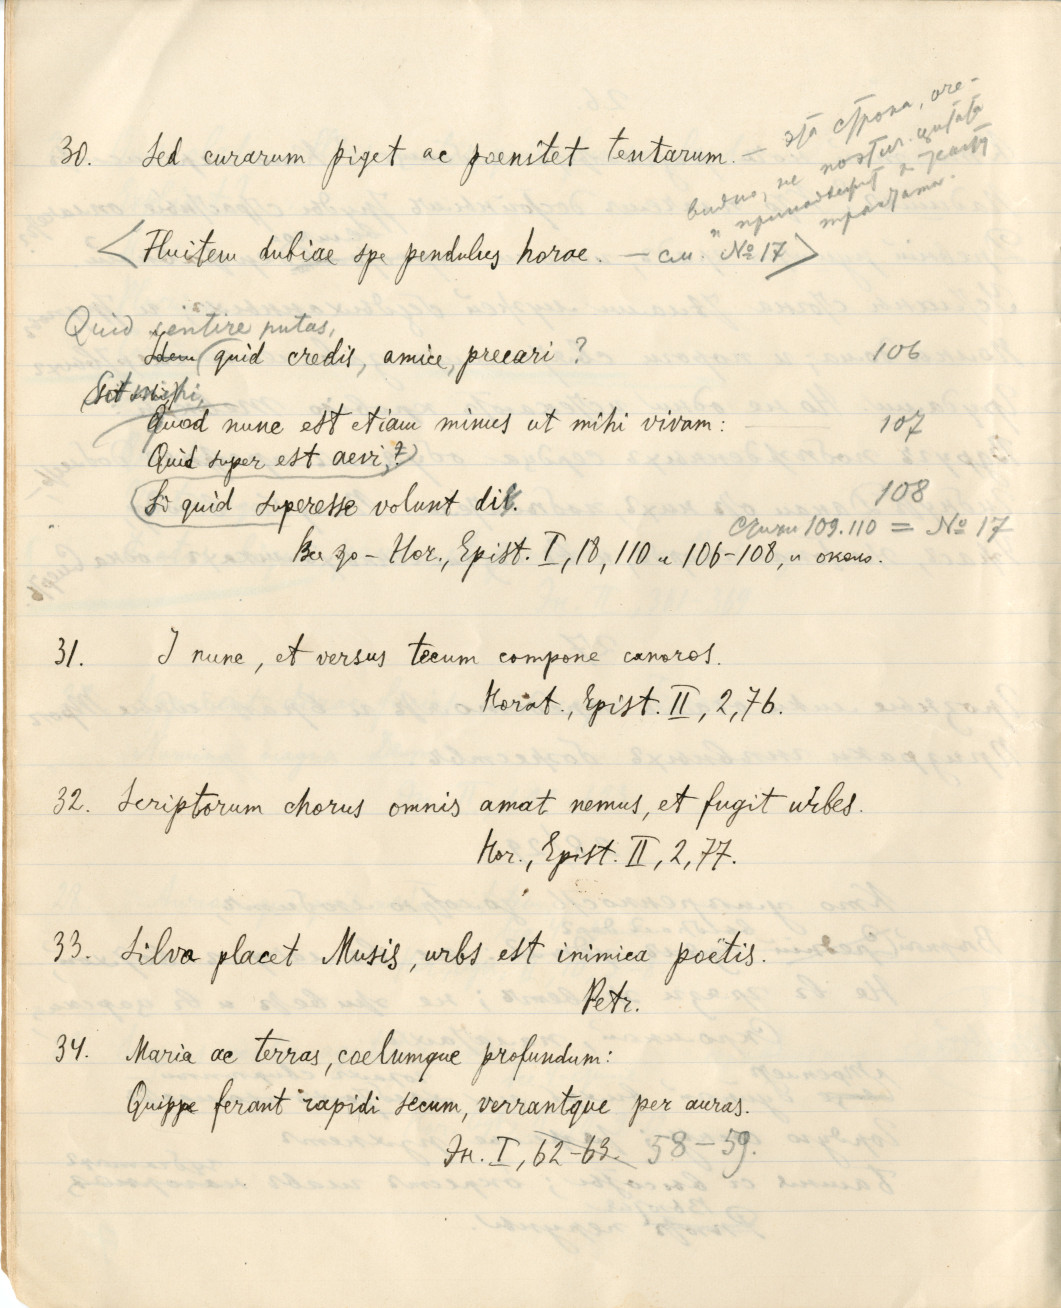 30. Sed curarum piget ac poenitet tentarum. — эта строка, оче-
видно, не поэтич. цитата
и принадлежит к тексту
трактата.
<Fluitem dubiae spe pendulus horae. — см. № 17>
Quid sentire putas,
quid credis, amice, precari? 106
Sit mihi,
Quod nunc est etiam minus ut mihi vivam: 107
Quid super est aevi,?
Si quid superesse volunt dii. 108
Стихи 109.110 = № 17
Все это – Hor., Epist. I, 18, 110 и 106–108, и около.
31. I nunc, et versus tecum compone canoros.
Horat., Epist. II, 2, 76.
32. Scriptorum chorus omnis amat nemus, et fugit urbes.
Hor., Epist. II, 2, 77.
33. Silva placet Musis, urbs est inimica poëtis.
Petr.
34. Maria ac terras, coelumque profundum:
Quippe ferant rapidi secum, verrantque per auras.
Эн. I, 62–63. 58–59.